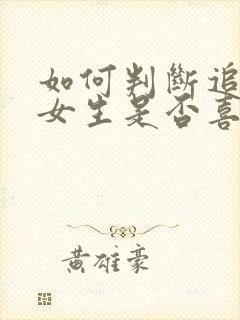 如何判斷追
女生是否喜
黃雄豪